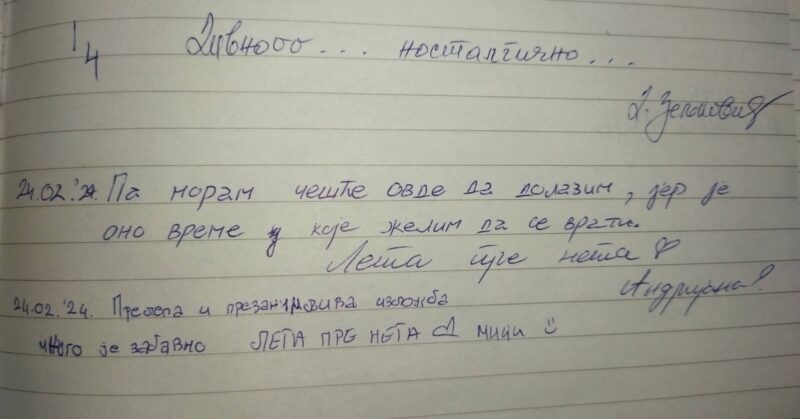 1/4 Дивнооо... носталгично...
24.02.'24. Па морам чешће овде да долазим, јер је
оно време у које желим да се врати.
Лета пре нета
Андријана
24.02.'24. Прелепа и презанимљива изложба
много је забавно ЛЕТА ПРЕ НЕТА мици